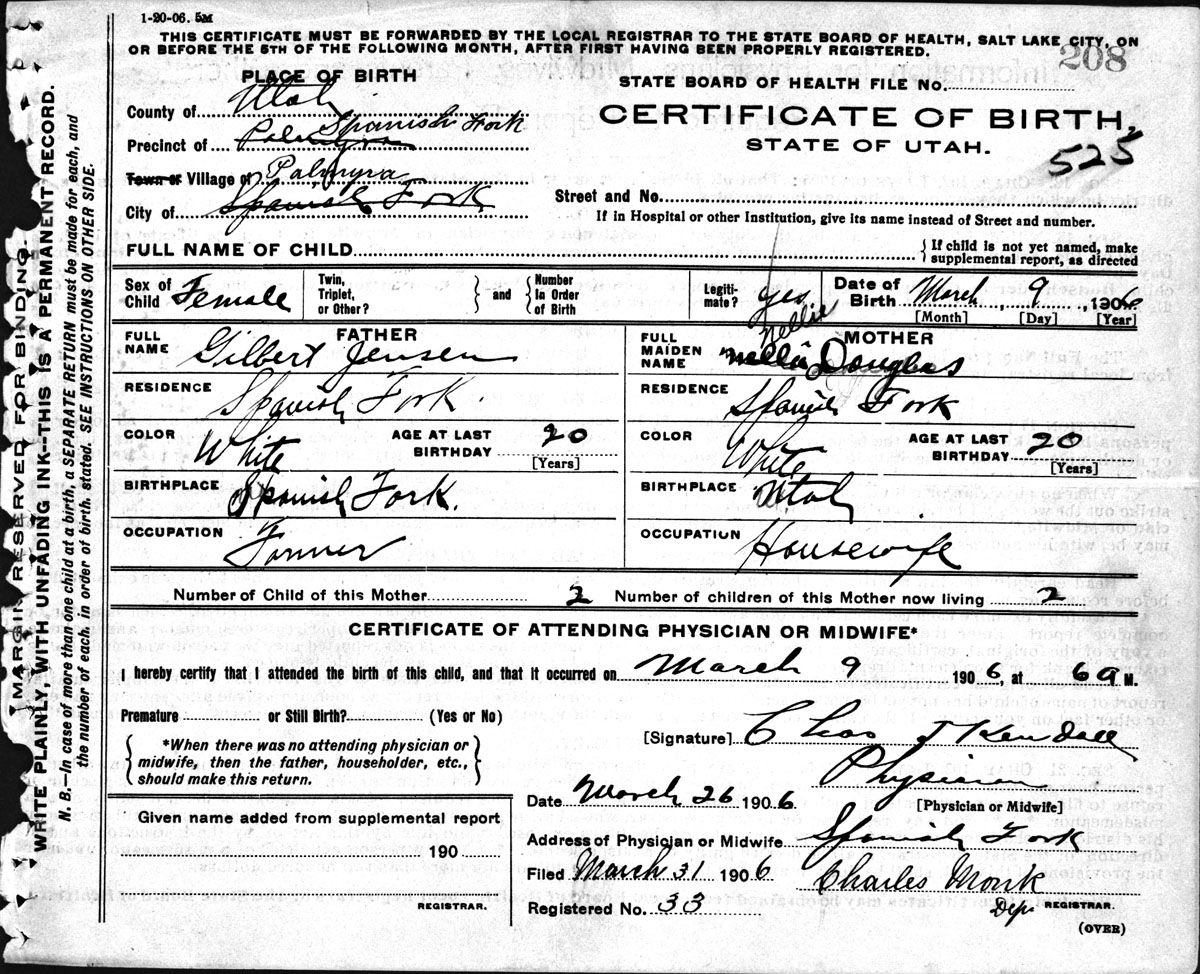 1-20-06. 5M
THIS CERTIFICATE MUST BE FORWARDED BY THE LOCAL REGISTRAR TO THE STATE BOARD OF HEALTH, SALT LAKE CITY, ON
OR BEFORE THE 5TH OF THE FOLLOWING MONTH, AFTER FIRST HAVING BEEN PROPERLY REGISTERED.
208
PLACE OF BIRTH
STATE BOARD OF HEALTH FILE No.
County of Utah
CERTIFICATE OF BIRTH,
STATE OF UTAH.
525
Precinct of Palmyra Spanish Fork
Town or Village of Palmyra
City of Spanish Fork
Street and No.
If in Hospital or other Institution, give its name instead of Street and number.
FULL NAME OF CHILD
{ If child is not yet named, make supplemental report, as directed
Sex of Child Female
Twin, Triplet, or Other? } and { Number In Order of Birth
Legiti-mate? Yes
Date of Birth March 9, 1906
[Month] [Day] [Year]
FATHER
FULL NAME Gilbert Jensen
RESIDENCE Spanish Fork
COLOR White AGE AT LAST BIRTHDAY 20 [Years]
BIRTHPLACE Spanish Fork.
OCCUPATION Farmer
MOTHER
FULL MAIDEN NAME Nellie Nellie Douglas
RESIDENCE Spanish Fork
COLOR White AGE AT LAST BIRTHDAY 20 [Years]
BIRTHPLACE Utah
OCCUPATION Housewife
Number of Child of this Mother 2 Number of children of this Mother now living 2
CERTIFICATE OF ATTENDING PHYSICIAN OR MIDWIFE*
I hereby certify that I attended the birth of this child, and that it occurred on March 9 1906, at 6 a M.
Premature or Still Birth? (Yes or No)
{ *When there was no attending physician or
midwife, then the father, householder, etc.,
should make this return. }
[Signature] Chas J Kendall
Physician
[Physician or Midwife]
Date March 26 1906
Given name added from supplemental report
190
REGISTRAR.
Address of Physician or Midwife Spanish Fork
Filed March 31 1906 Charles Monk
Registered No. 33 Dep. REGISTRAR.
(OVER)
MARGIN RESERVED FOR BINDING.
WRITE PLAINLY, WITH UNFADING INK—THIS IS A PERMANENT RECORD.
N. B.—In case of more than one child at a birth, a SEPARATE RETURN must be made for each, and
the number of each, in order of birth, stated. SEE INSTRUCTIONS ON OTHER SIDE.